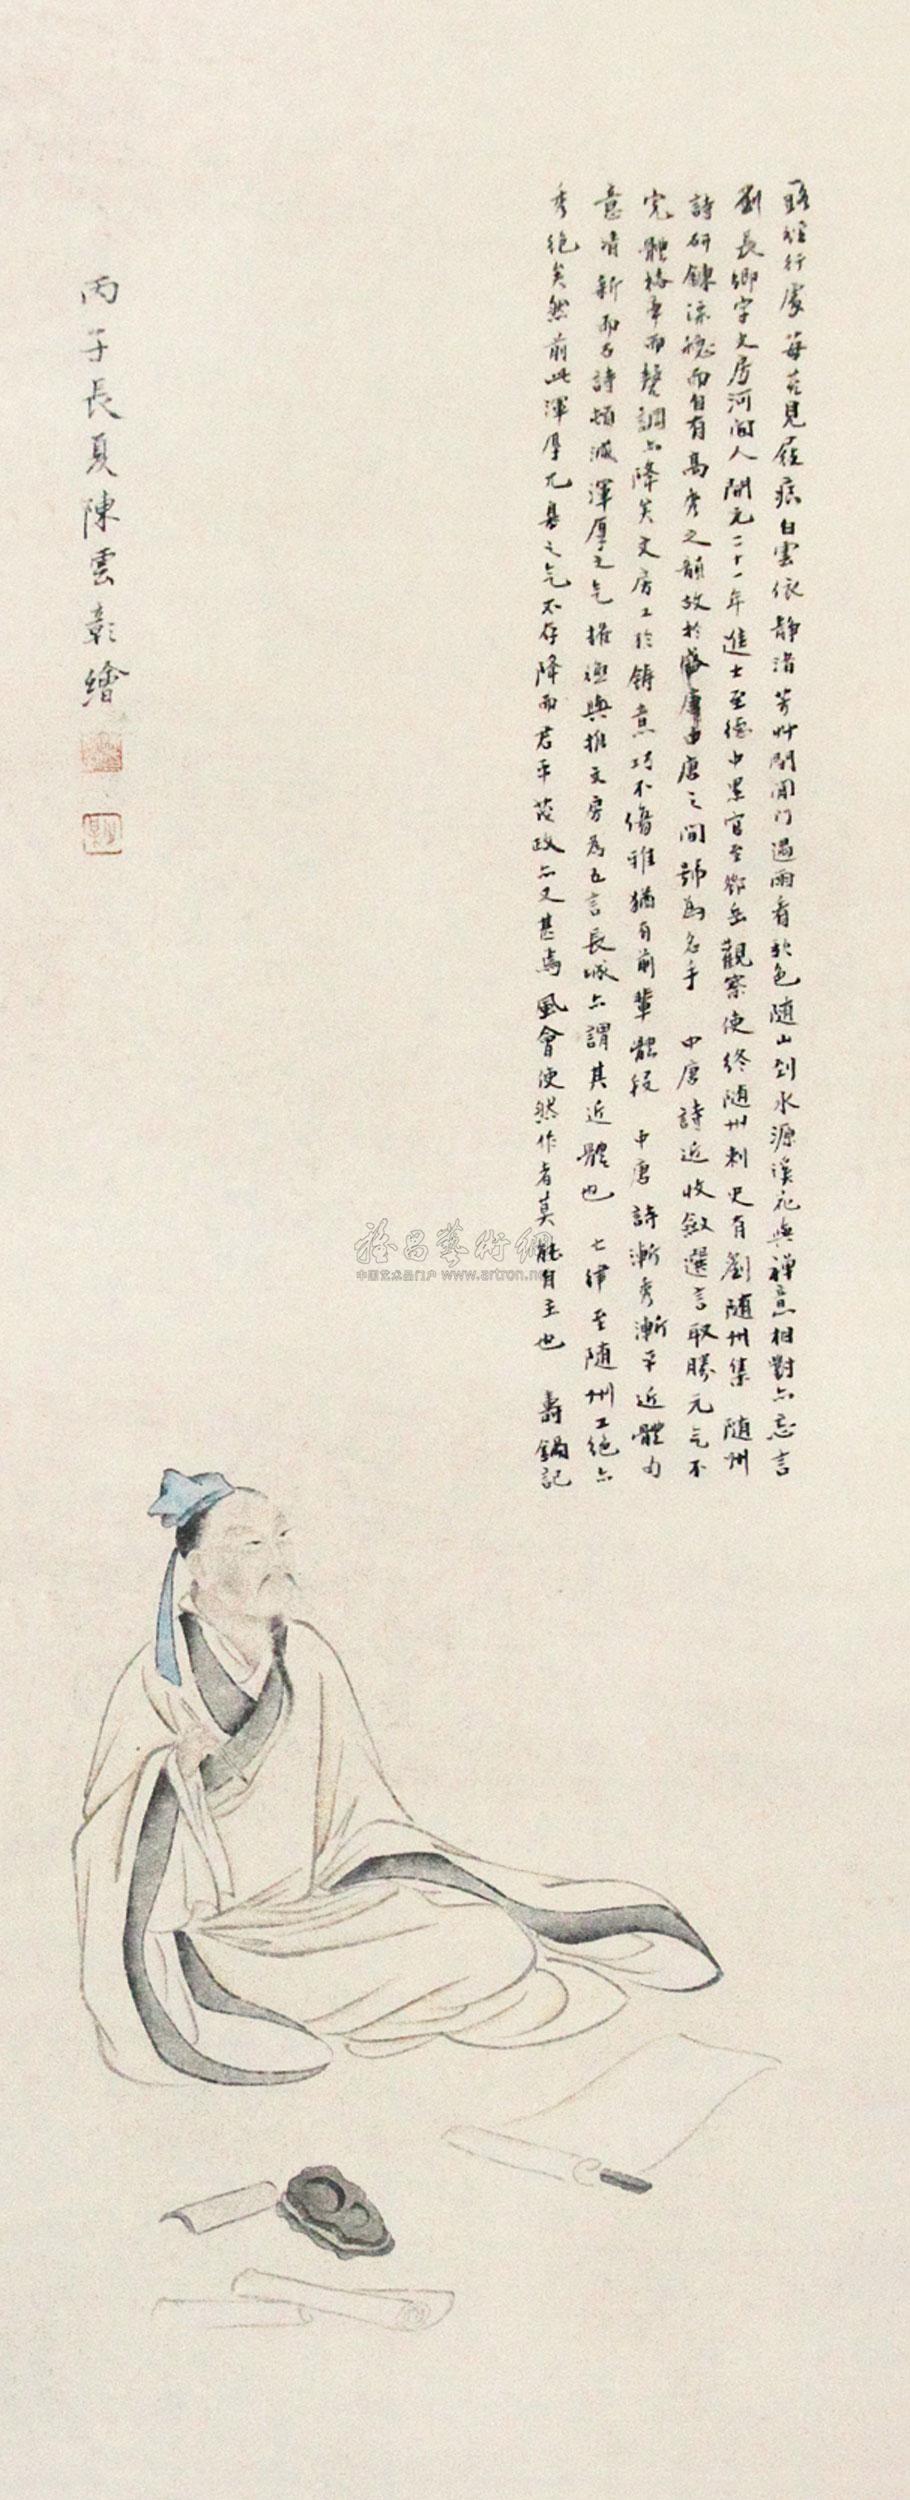 一路經行處莓苔見屐痕白雲依靜渚芳艸閉閒門過雨看松色随山到水源溪花與禪意相對亦忘言
劉長卿字文房河間人開元二十一年進士至德中累官至鄂岳觀察使終随州刺史有劉随州集 随州
詩研鍊深穩而自有高秀之韻故於盛唐中唐之間號為名手 中唐詩近收斂選言取勝元气不
完體格卑而聲調亦降矣文房工於鑄意巧不傷雅猶有前輩體段 中唐詩漸秀漸平近體句
意清新而古詩頓減渾厚之气 權德輿推文房為五言長城亦謂其近體也 七律至随州工絕亦
秀絕矣然前此渾厚兀奡之气不存降而君平茂政亦又甚焉風會使然作者莫能自主也 壽鍋記
丙子長夏陳雲彰繪
雅昌藝術網
中国艺术品门户 www.artron.net